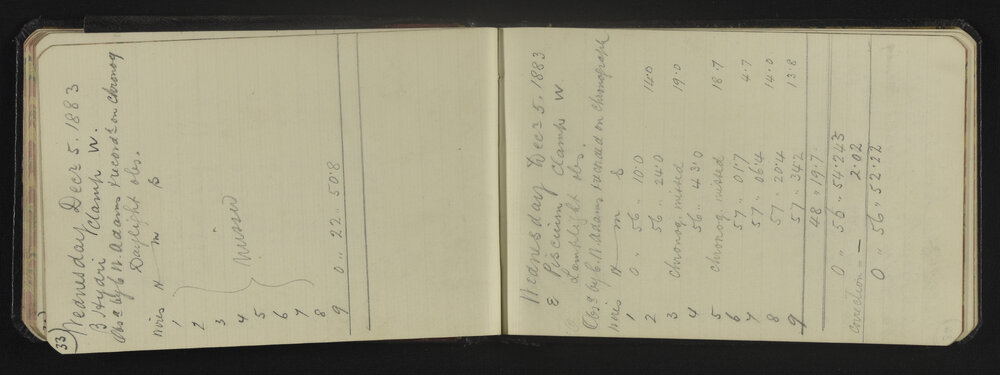 33
Wednesday Decr 5. 1883
B Hydri Clamp W.
Obsd by C N. Adams & record on Chronog
Daylight obs.
Wires H m S
1
2
3
4 missed
5
6
7
8
9 0 " 22 " 50.8
Wednesday Decr 5. 1883
E Piscium Clamp W
Lamplight obs.
Obsd by C N Adams & recorded on Chronograph
Wires H m S
1 0 " 56 " 10.0
2 56 " 24.0 14.0
3 Chronog. missed
4 56 " 43.0 19.0
5 Chronog. missed
6 57 " 01.7 18.7
7 57 " 06.4 4.7
8 57 " 20.4 14.0
9 57 " 34.2 13.8
48 " 19.7
0 " 56 " 54.243
Correction = - 2.02
0 " 56 " 52.22